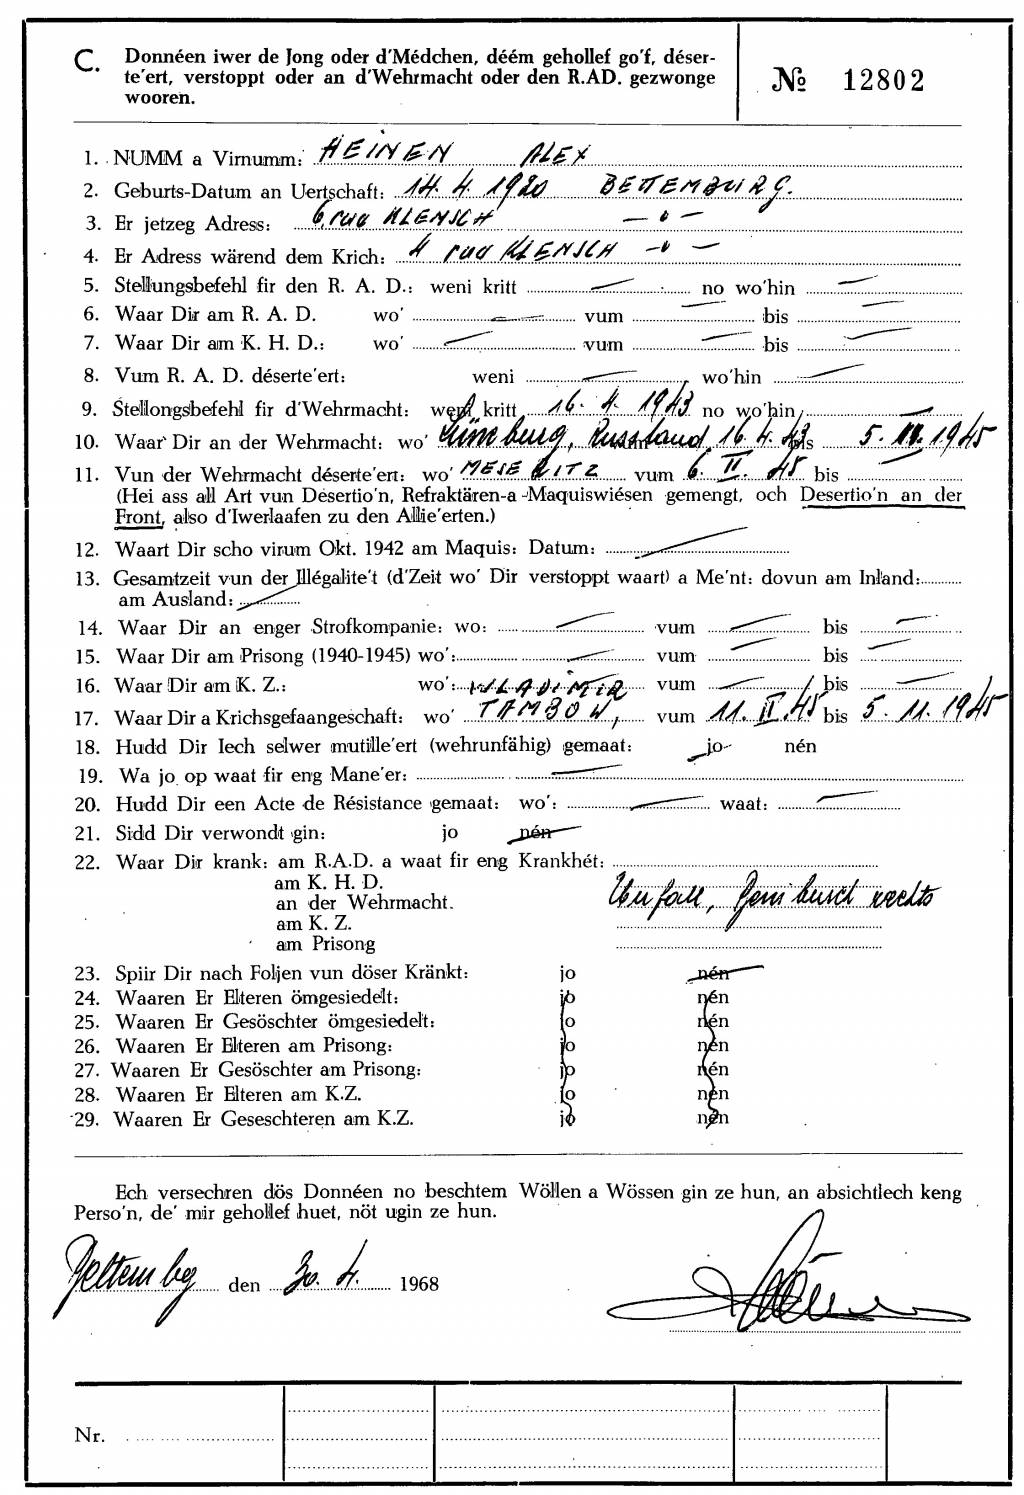 C. Donnéen iwer de Jong oder d'Médchen, déém gehollef go'f, déser-
te'ert, verstoppt oder an d'Wehrmacht oder den R.AD. gezwonge
wooren.
№ 12802
1. NUMM a Virnumm: HEINEN ALEX
2. Geburts-Datum an Uertschaft: 14. 4. 1920 BETTEMBURG.
3. Er jetzeg Adress: 6 rue KLENSCH — " —
4. Er Adress wärend dem Krich: 4 rue KLENSCH — " —
5. Stellungsbefehl fir den R. A. D.: weni kritt — no wo'hin —
6. Waar Dir am R. A. D. wo' — vum — bis —
7. Waar Dir am K. H. D.: wo' — vum — bis —
8. Vum R. A. D. déserte'ert: weni — wo'hin —
9. Stellongsbefehl fir d'Wehrmacht: weni kritt 16. 4. 1943 no wo'hin —
10. Waar Dir an der Wehrmacht: wo' Lüneburg, Russland 16. 4. 43 bis 5. 11. 1945
11. Vun der Wehrmacht déserte'ert: wo' MESERITZ vum 6. II. 45 bis —
(Hei ass all Art vun Desertio'n, Refraktären-a -Maquiswiésen gemengt, och Desertio'n an der
Front, also d'Iwerlaafen zu den Allie'erten.)
12. Waart Dir scho virum Okt. 1942 am Maquis: Datum: —
13. Gesamtzeit vun der Illégalite't (d'Zeit wo' Dir verstoppt waart) a Me'nt: dovun am Inland:
am Ausland: —
14. Waar Dir an enger Strofkompanie: wo: — vum — bis —
15. Waar Dir am Prisong (1940-1945) wo': — vum — bis —
16. Waar Dir am K. Z.: wo': WLADIMIR vum — bis —
17. Waar Dir a Krichsgefaangeschaft: wo' TAMBOW, vum 11. II. 45 bis 5. 11. 1945
18. Hudd Dir Iech selwer mutille'ert (wehrunfähig) gemaat: jo nén
19. Wa jo op waat fir eng Mane'er: —
20. Hudd Dir een Acte de Résistance gemaat: wo': — waat: —
21. Sidd Dir verwondt gin: jo nén
22. Waar Dir krank: am R.A.D. a waat fir eng Krankhét:
am K. H. D.
an der Wehrmacht. Unfall, rechts
am K. Z.
am Prisong
23. Spiir Dir nach Foljen vun döser Kränkt: jo nén
24. Waaren Er Elteren ömgesiedelt: jo nén
25. Waaren Er Gesöschter ömgesiedelt: jo nén
26. Waaren Er Elteren am Prisong: jo nén
27. Waaren Er Gesöschter am Prisong: jo nén
28. Waaren Er Elteren am K.Z. jo nén
29. Waaren Er Geseschteren am K.Z. jo nén
Ech versechren dös Donnéen no beschtem Wöllen a Wössen gin ze hun, an absichtlech keng
Perso'n, de' mir gehollef huet, nöt ugin ze hun.
Bettemburg den 30. 4. 1968
Nr.